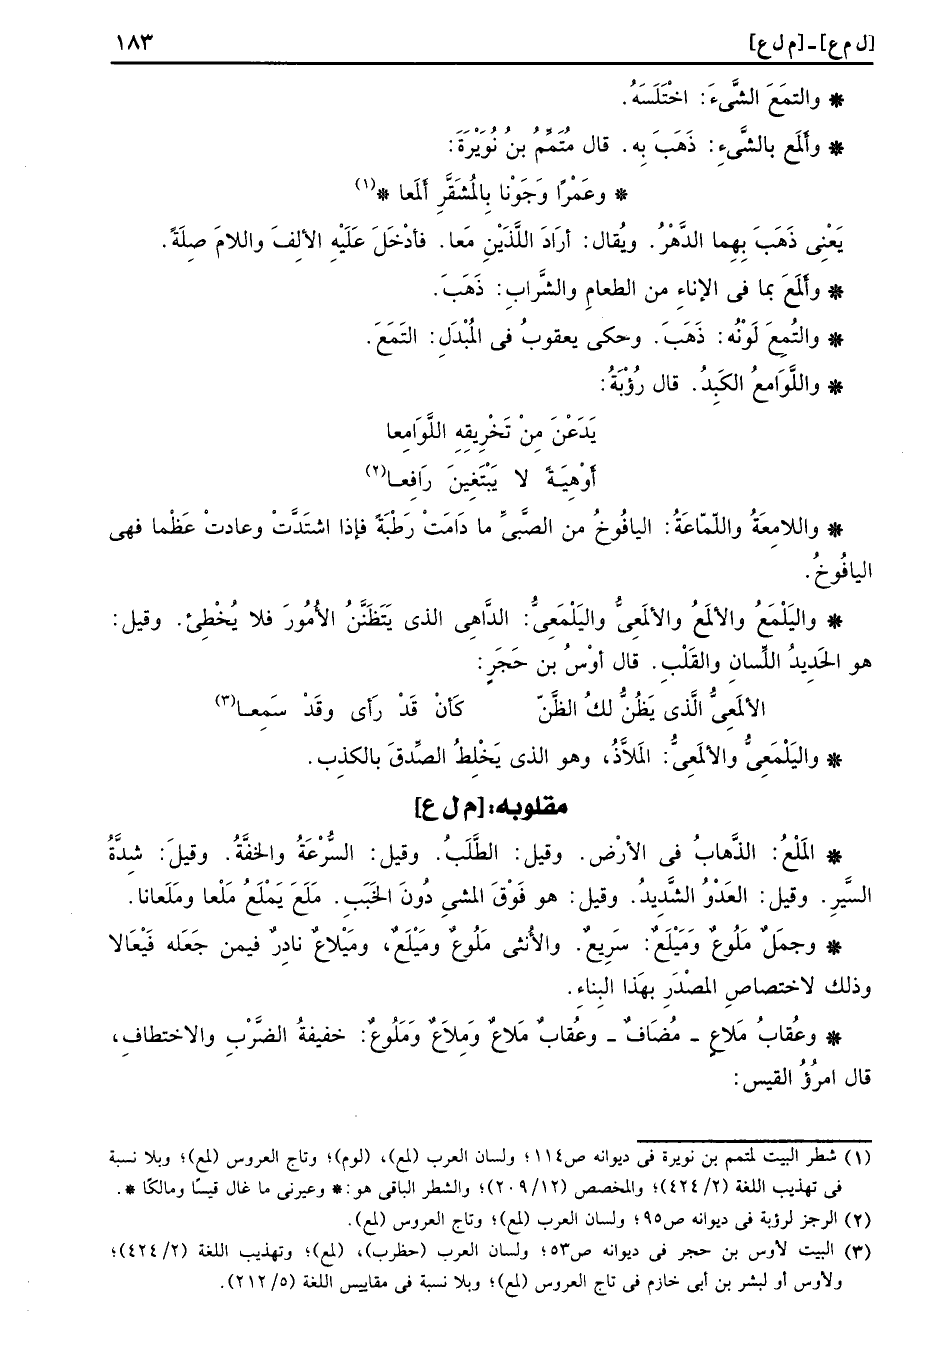 [ل م ع] ـ [م ل ع] ١٨٣
* والتمَعَ الشَّىءَ: اخْتَلَسَهُ.
* وألَمع بالشَّىءِ: ذَهَبَ بِه. قال مُتَمِّمُ بنُ نُوَيْرَةَ:
* وعَمْرًا وَجَوْنا بِالْمُشَقَّرِ ألَمعا *(١)
يَعْنِى ذَهَبَ بِهِما الدَّهْرُ. ويُقال: أرَادَ اللَّذَيْنِ مَعا. فأدْخَلَ عَلَيْهِ الألِفَ واللامَ صِلَةً.
* وألَمَعَ بِما فى الإناءِ من الطعامِ والشَّرابِ: ذَهَبَ.
* والتُمِعَ لَوْنُه: ذَهَبَ. وحكى يعقوبُ فى المُبْدَلِ: التَمَعَ.
* واللَّوَامِعُ الكَبِدُ. قال رُؤْبَةُ:
يَدَعْنَ مِنْ تَخْرِيقِهِ اللَّوَامِعا
أوْهِيَةً لا يَبْتَغِينَ رَافِعا(٢)
* واللامِعَةُ واللَّمّاعَةُ: اليافُوخُ من الصَّبِىِّ ما دَامَتْ رَطْبَةً فإذا اشتَدَّتْ وعادتْ عَظْما فهى
اليافُوخُ.
* واليَلْمَعُ والألَمعُ والألَمعِىُّ واليَلْمَعِىُّ: الدَّاهِى الذى يَتَظَنَّنُ الأُمُورَ فلا يُخْطِئ. وقيل:
هو الحَدِيدُ اللِّسانِ والقَلْبِ. قال أوْسُ بن حَجَرٍ:
الألَمعِىُّ الَّذى يَظُنُّ لكُ الظَّنّ كَأنْ قَدْ رَأى وقَدْ سَمِعا(٣)
* واليَلْمَعِىُّ والألَمعِىُّ: المَلاَّذُ، وهو الذى يَخْلِطُ الصِّدقَ بالكذِبِ.
مقلوبه: [م ل ع]
* المَلْعُ: الذَّهابُ فى الأرْضِ. وقيل: الطَّلَبُ. وقيل: السُّرْعَةُ والخفَّةُ. وقيلَ: شِدَّةُ
السَّيرِ. وقيل: العَدْوُ الشَّدِيدُ. وقيل: هو فَوْقَ المشىِ دُونَ الخَبَبِ. مَلَعَ يَمْلَعُ مَلْعا ومَلَعانا.
* وجمَلٌ مَلُوعٌ وَمَيْلَعٌ: سَرِيعٌ. والأُنثى مَلُوعٌ ومَيْلَعٌ، ومَيْلاعٌ نادرٌ فيمن جَعَله فَيْعَالا
وذلك لاختصاصِ المصْدَرِ بهَذا البِناءِ.
* وعُقابُ مَلاعٍ ـ مُضَافٌ ـ وعُقابٌ مَلاعٌ وَمِلاَعٌ ومَلُوعٌ: خفيفةُ الضَّرْبِ والاختطافِ،
قال امرُؤُ القيس:
(١) شطر البيت لمتمم بن نويرة فى ديوانه ص١١٤؛ ولسان العرب (لمع)، (لوم)؛ وتاج العروس (لمع)؛ وبلا نسبة
فى تهذيب اللغة (٤٢٤/٢)؛ والمخصص (٢٠٩/١٢)؛ والشطر الباقى هو: * وعيرنى ما غال قيسًا ومالكًا *.
(٢) الرجز لرؤبة فى ديوانه ص٩٥؛ ولسان العرب (لمع)؛ وتاج العروس (لمع).
(٣) البيت لأوس بن حجر فى ديوانه ص٥٣؛ ولسان العرب (حظرب)، (لمع)؛ وتهذيب اللغة (٤٢٤/٢)؛
ولأوس أو لبشر بن أبى خازم فى تاج العروس (لمع)؛ وبلا نسبة فى مقاييس اللغة (٢١٢/٥).